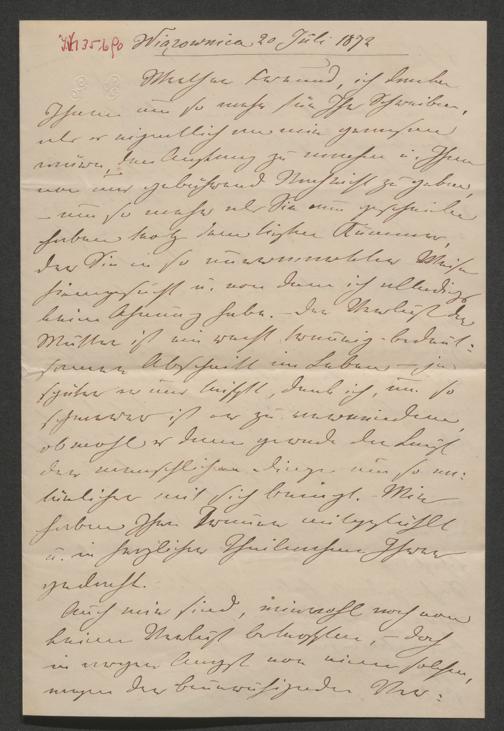 IN 135690 Wiązownica 20 Juli 1872
Werther Freund, ich danke
Ihnen um so mehr für Ihr Schreiben,
als es eigentlich an mir gewesen
wäre, den Anfang zu machen u. Ihnen
von uns gebührend Nachricht zu geben,
– um so mehr als Sie uns geschrieben
haben trotz dem tiefen Kummer,
der Sie in so unerwarteter Weise
heimgesucht u. von dem ich allerdings
keine Ahnung habe. – Der Verlust der
Mutter ist ein recht traurig-bedeut-
samer Abschnitt im Leben – je
später er uns trifft, denk ich, um so
schwerer ist er zu verwinden,
obwohl er dann gerade der Lauf
der menschlichen Dinge um so na-
türlicher mit sich bringt. Wir
haben Ihre Trauer mitgefühlt
u. in herzlicher Theilnahme Ihrer
gedacht. –
Auch wir sind, wiewohl noch von
keinem Verlust betroffen, – doch
in ewiger Angst vor einem solchen,
wegen der beunruhigenden Ver-